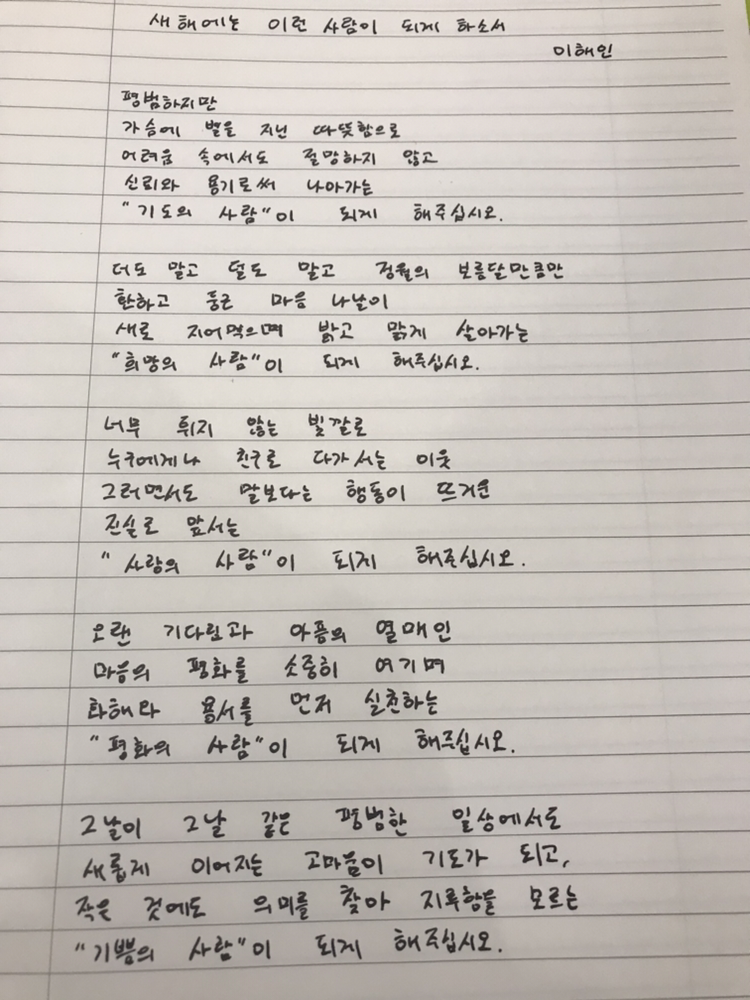 새해에는 이런 사람이 되게 하소서
이해인
평범하지만
가슴에 별을 지닌 따뜻함으로
어려움 속에서도 절망하지 않고
신뢰와 용기로써 나아가는
"기도의 사람"이 되게 해주십시오.
더도 말고 덜도 말고 정월의 보름달만큼만
환하고 둥근 마음 나날이
새로 지어먹으며 밝고 맑게 살아가는
"희망의 사람"이 되게 해주십시오.
너무 튀지 않는 빛깔로
누구에게나 친구로 다가서는 이웃
그러면서도 말보다는 행동이 뜨거운
진실로 앞서는
"사랑의 사람"이 되게 해주십시오.
오랜 기다림과 아픔의 열매인
마음의 평화를 소중히 여기며
화해와 용서를 먼저 실천하는
"평화의 사람"이 되게 해주십시오.
그날이 그날 같은 평범한 일상에서도
새롭게 이어지는 고마움이 기도가 되고,
작은 것에도 의미를 찾아 지루함을 모르는
"기쁨의 사람"이 되게 해주십시오.